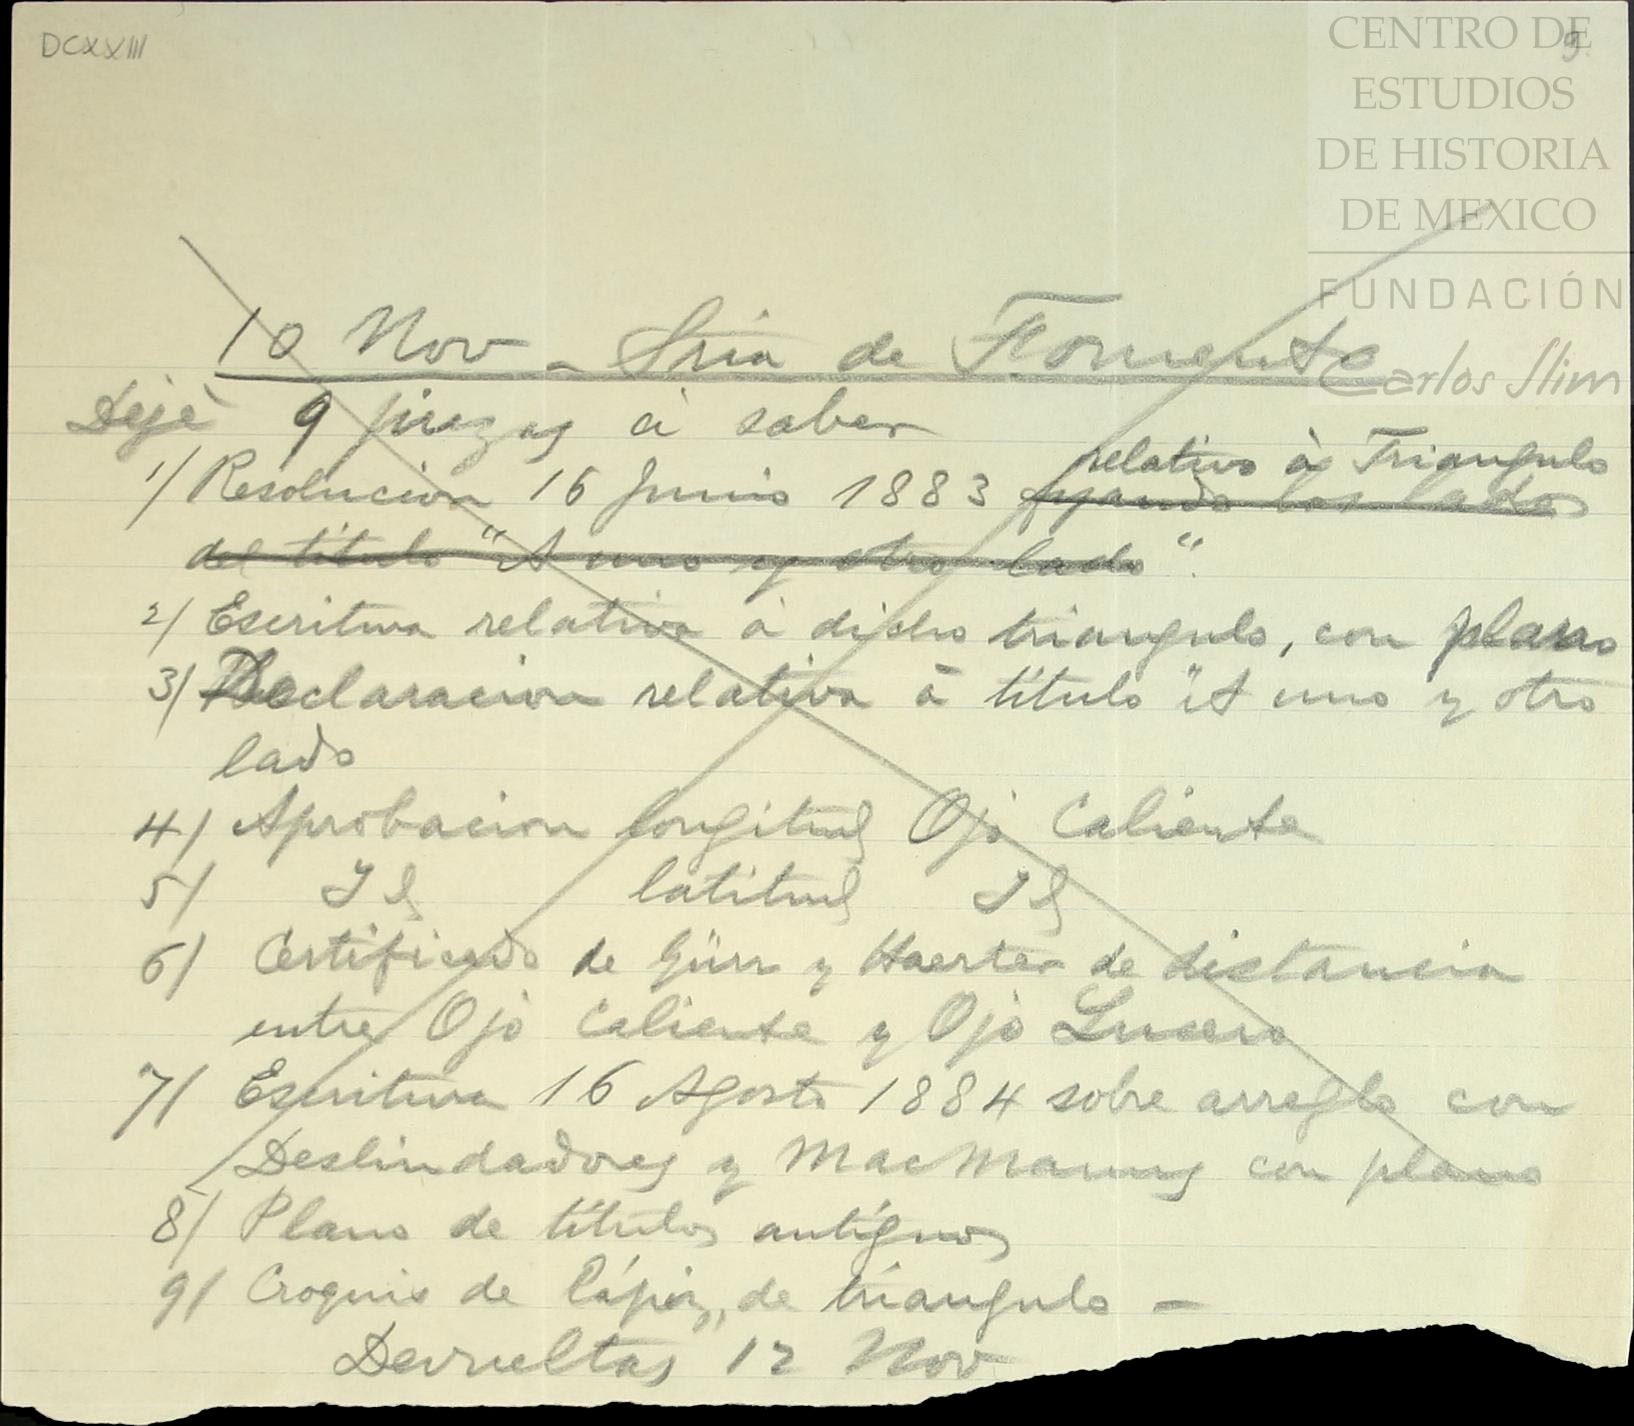 DCXXIII
9
CENTRO DE
ESTUDIOS
DE HISTORIA
DE MEXICO
FUNDACIÓN
Carlos Slim
10 Nov - Sria de Fomento
Dejè 9 piezas á saber
relativo à Triangulo
1/ Resolucion 16 Junio 1883 fijando los lados
del titulo "A uno y otro lado".
2/ Escritura relativa á dicho triangulo, con plano
3/ Declaracion relativa á titulo "A uno y otro
lado
4/ Aprobacion longitud Ojo Caliente
5/ Id latitud Id
6/ Certificado de Gürr y Haerter de distancia
entre Ojo Caliente y Ojo Lucero
7/ Escritura 16 Agosto 1884 sobre arreglo con
Deslindadores y MacManus con plano
8/ Plano de titulos antiguos
9/ Croquis de lápiz, de triangulo -
Devueltas 12 Nov